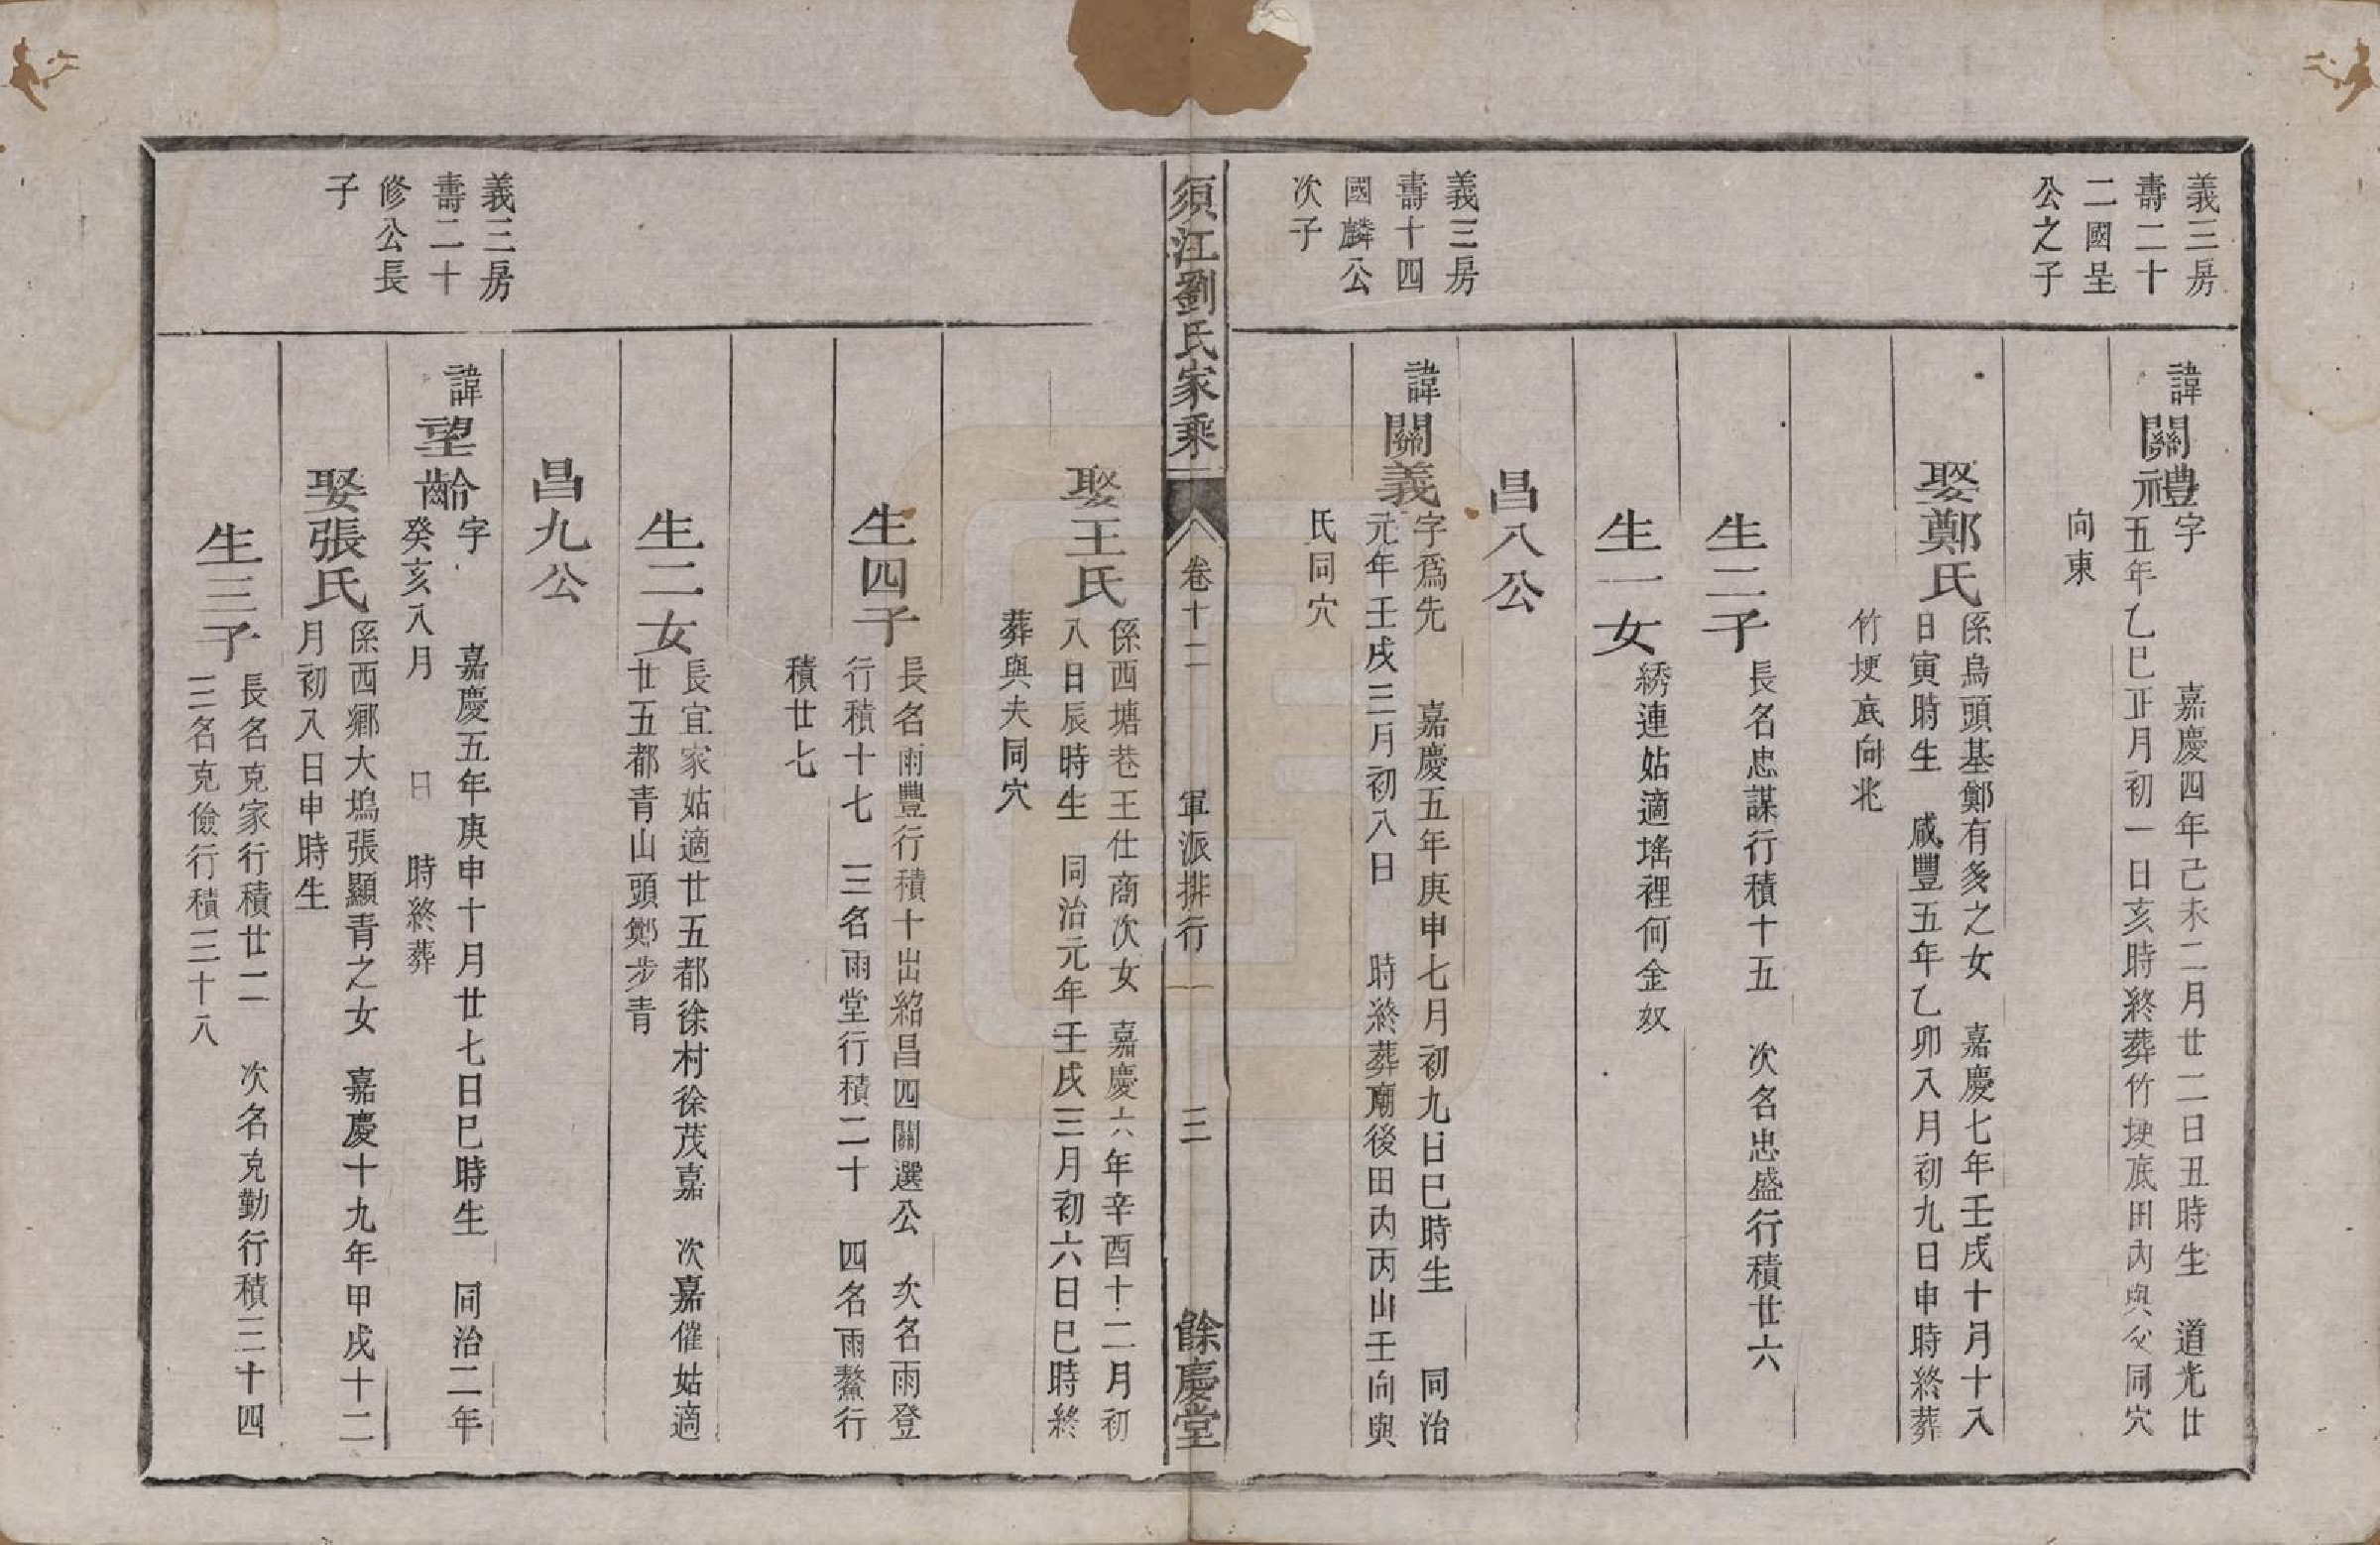 義三房
壽二十
二國呈
公之子
諱關禮字　嘉慶四年己未二月廿二日丑時生　道光廿
五年乙巳正月初一日亥時終葬竹埂底田內與父同穴
向東
娶鄭氏係烏頭基鄭有多之女　嘉慶七年壬戌十月十八
日寅時生　咸豐五年乙卯八月初九日申時終葬
竹埂底向北
生二子長名忠謀行積十五　次名忠盛行積廿六
生一女綉連姑適塔裡何金奴
昌八公
義三房
壽十四
國麟公
次子
諱關義字為先　嘉慶五年庚申七月初九日巳時生　同治
元年壬戌三月初八日　時終葬廟後田內丙山壬向與
氏同穴
須江劉氏家乘
卷十二
軍派排行
三
餘慶堂
娶王氏係西塘巷王仕商次女　嘉慶六年辛酉十二月初
八日辰時生　同治元年壬戌三月初六日巳時終
葬與夫同穴
生四子長名雨豐行積十出紹昌四關選公　次名雨登
行積十七　三名雨堂行積二十　四名雨鰲行
積廿七
生二女長宜家姑適廿五都徐村徐茂嘉　次嘉催姑適
廿五都青山頭鄭步青
昌九公
義三房
壽二十
修公長
子
諱望齡字　嘉慶五年庚申十月廿七日巳時生　同治二年
癸亥八月　日　時終葬
娶張氏係西鄉大塢張顯青之女　嘉慶十九年甲戌十二
月初八日申時生
生三子長名克家行積廿二　次名克勤行積三十四
三名克儉行積三十八